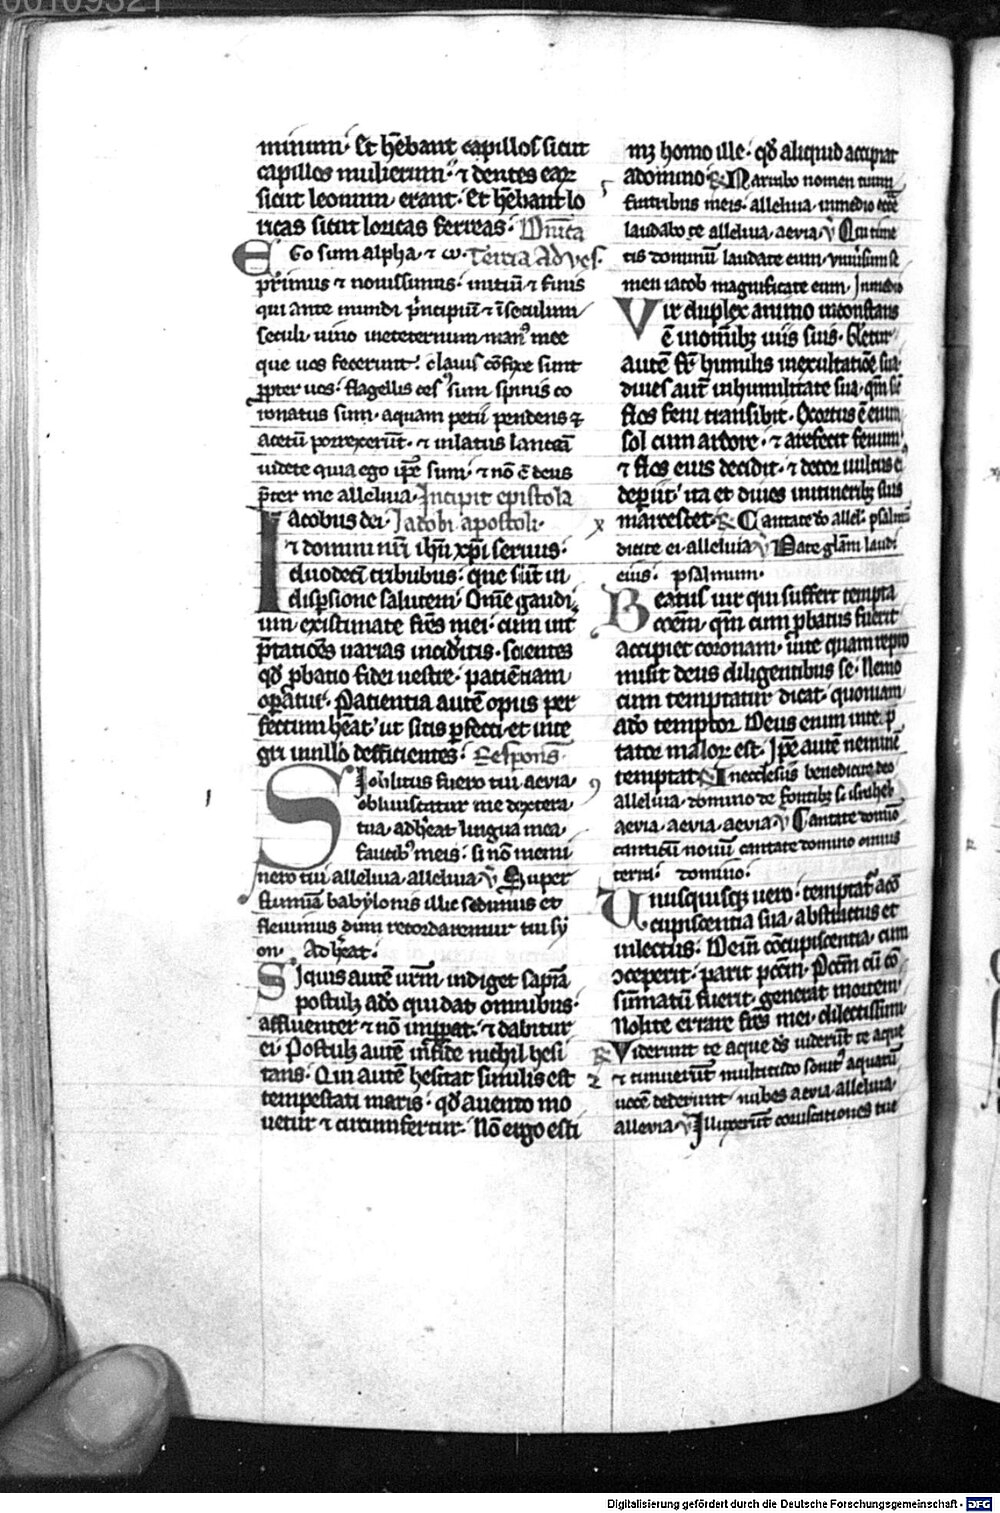 minum· Et hēbant capillos sicut
capillos mulierum· ⁊ dentes eaꝝ
sicut leonum erant· Et hēbant lo
ricas sicut loricas ferreas· Dnīca
Ego sum alpha· ⁊ ω· Tercia Ad ves.
primus ⁊ nouissimus· initiū ⁊ finis
qui ante mundi pͥncipiū ⁊ ī seculum
seculi· uiuo ineternum· manꝰ mee
que uos fecerunt· clauis cōfixe sunt
ꝓpter uos· flagellis cesꝰ sum spinis co
ronatus sum· aquam petii pendens ⁊
acetū porrexerūt· ⁊ in latus lanceā
uidete quia ego ip̄e sum· ⁊ nō ē deus
p̄ter me alleluia· Incipit epistola
Iacobus dei· Iacobi apostoli·
⁊ domini nr̄i ih̄u xp̄i seruus·
duodecī tribubus· que sūt in
disp̄sione salutem· Om̄e gaudi
um existimate fr̄es mei· cum int
p̄tatiōes uarias incidͥtis· scientes
qđ ꝓbatio fidei uestre· patiētiam
op̄atur· Patientia autē opus per
fectum hēat· ut sitis ꝑfecti et inte
gri in nullo defficientes· Respons̄
Si oblitus fuero tui aevia·
obliuiscatur me dextera
tua· adhēat lingua mea
faucibꝰ meis· si nō memi
nero tui alleluia· alleluia· v̄ Super
flumīa babylonis illic sedimus et
fleuimus dum recordaremur tui sy
on· Adhēat·
Si quis autē urm̄· indiget sapīa
postulꝫ a dō qui dat omnibus·
affluenter ⁊ nō imꝓpat· ⁊ dabitur
ei· Postulꝫ autē in fide nichil hesi
tans· Qui autē hesitat similis est
tempestati maris· qđ a uento mo
uetur ⁊ circumfertur· Nō ergo esti
mꝫ homo ille· qđ aliquid accipiat
a domino R̄ Narrabo nomen tuum
fratribus meis· alleluia· in medio ecc̄e
laudabo te alleluia· aevia· v̄ Qui time
tis dominū laudate eum· uniūsum se
men iacob magnificate eum· In medio
Vir duplex animo inconstans
ē in omībꝫ uiis suis· Gl̄etur
autē fr̄ humilis in exultatiōe sua
diues aut̄ in humilitate sua· qm̄ sic̄
flos feni transibit· Exortus ē enim
sol cum ardore· ⁊ arefecit fenum·
⁊ flos eius decidit· ⁊ decor uultus eͥ
deꝑiit· ita et diues in itineribꝫ suis
marcescet· R̄ Cantate dō allel· psalmū
dicite ei· alleluia· v̄ Date gl̄am laudi
eius· psalmum·
Beatus uir qui suffert tempta
cōem· qm̄ cum ꝓbatus fuerit
accipiet coronam· uite quam repro
misit deus diligentibus se· Nemo
cum temptatur dicat· quoniam
a dō temptor· Deus enim inte p̄
tator malor· est· Ip̄e autē neminē
temptat R̄ In ecclesiis benedicite deo
alleluia· domino de fontibꝫ isrl̄
aevia· aevia· aevia· v̄ Cantate domīo
canticū nouū cantate domino omnis
terra· domino·
Unusquisqꝫ uero· temptat̄ a cō
cupiscentia sua· abstractus et
inlectus· Dein̄ cōcupiscentia· cum
ↄceperit· parit pccm̄· Pccm̄ cū cō
sūmatū fuerit· generat mortem·
Nolite errare fr̄es mei· dilectissimi·
R̄ Viderunt te aque ds̄ uiderūt te aque
⁊ timuerūt multitudo sonitꝰ aquarū
uocē dederunt· nubes aevia· alleluia·
allevia· v̄ Illuxerūt coruscationes tue
Digitalisierung gefördert durch die Deutsche Forschungsgemeinschaft - DFG